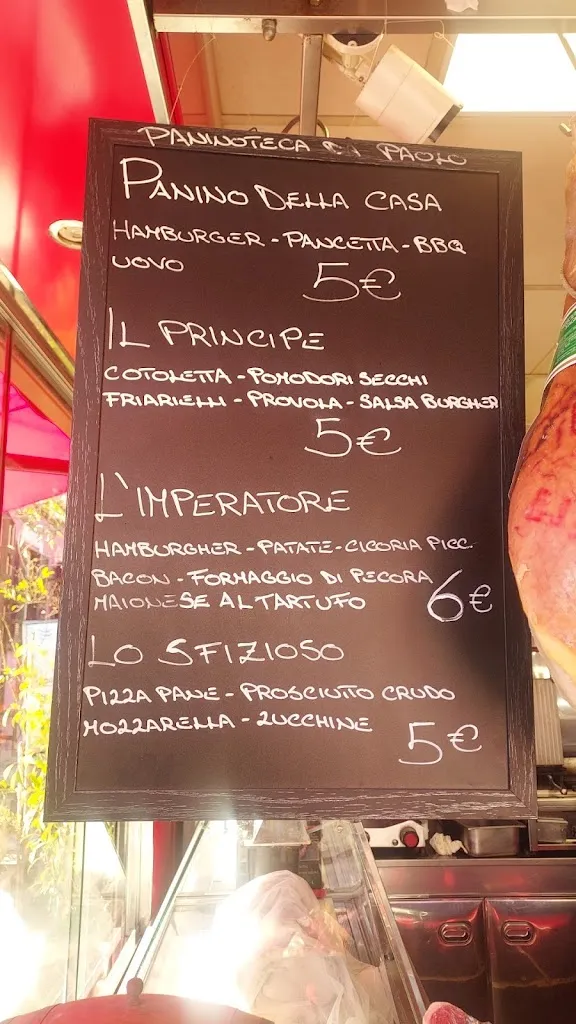 PANINOTECA DI PAOLO
PANINO DELLA CASA
HAMBURGER - PANCETTA - BBQ
UOVO
5€
IL PRINCIPE
COTOLETTA - POMODORI SECCHI
FRIARIELLI - PROVOLA - SALSA BURGHER
5€
L'IMPERATORE
HAMBURGHER - PATATE - CICORIA PICC.
BACON - FORMAGGIO DI PECORA
MAIONESE AL TARTUFO
6€
LO SFIZIOSO
PIZZA PANE - PROSCIUTTO CRUDO
MOZZARELLA - ZUCCHINE
5€